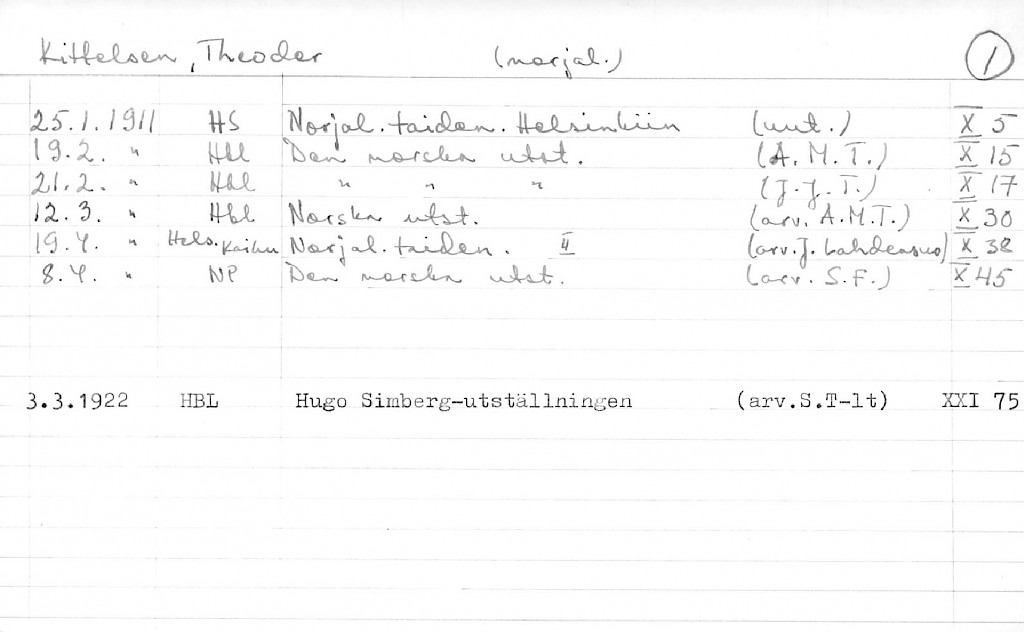 Kittelsen, Theodor (norjal.) 1
25.1.1911 HS Norjal. taiden. Helsinkiin (uut.) X 5
19.2. " Hbl Den norska utst. (A.M.T.) X 15
21.2. " Hbl " " " (J.J.T.) X 17
12.3. " Hbl Norska utst. (arv. A.M.T.) X 30
19.4. " Hels. Kaiku Norjal. taiden. II (arv. J. Lahdensuo) X 38
8.4. " NP Den norska utst. (arv. S.F.) X 45
3.3.1922 HBL Hugo Simberg-utställningen (arv.S.T-lt) XXI 75